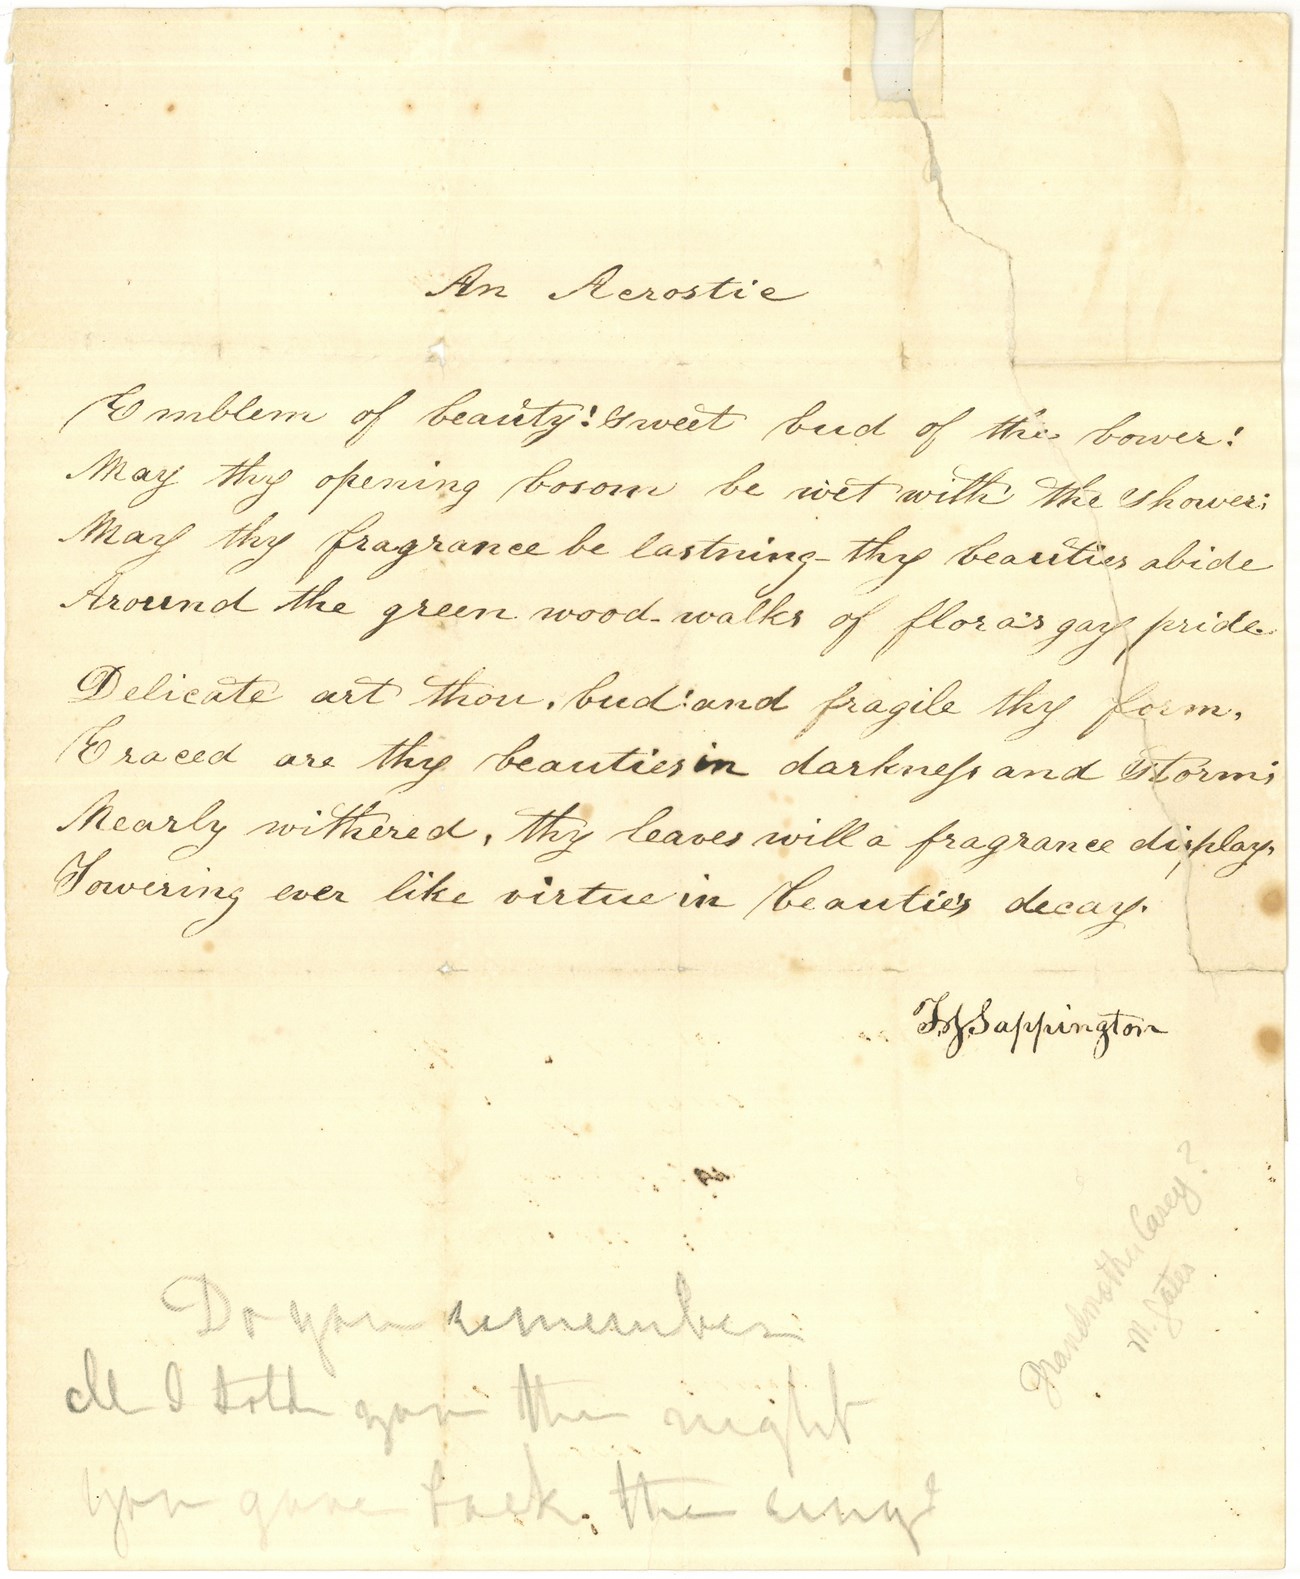 An Acrostic
Emblem of beauty! Sweet bud of the bower!
May thy opening bosom be wet with the shower;
May thy fragrance be lastning - thy beauties abide
Around the green wood-walks of flora's gay pride.
Delicate art thou, bud! and fragile thy form,
Eraced are thy beauties in darkness and storm;
Nearly withered, thy leaves will a fragrance display,
Towering ever like virtue in beautie's decay.
Sappington
Grandmother Casey?
M. Gates
Do you remember
All I told you the night
you gave back the ring?